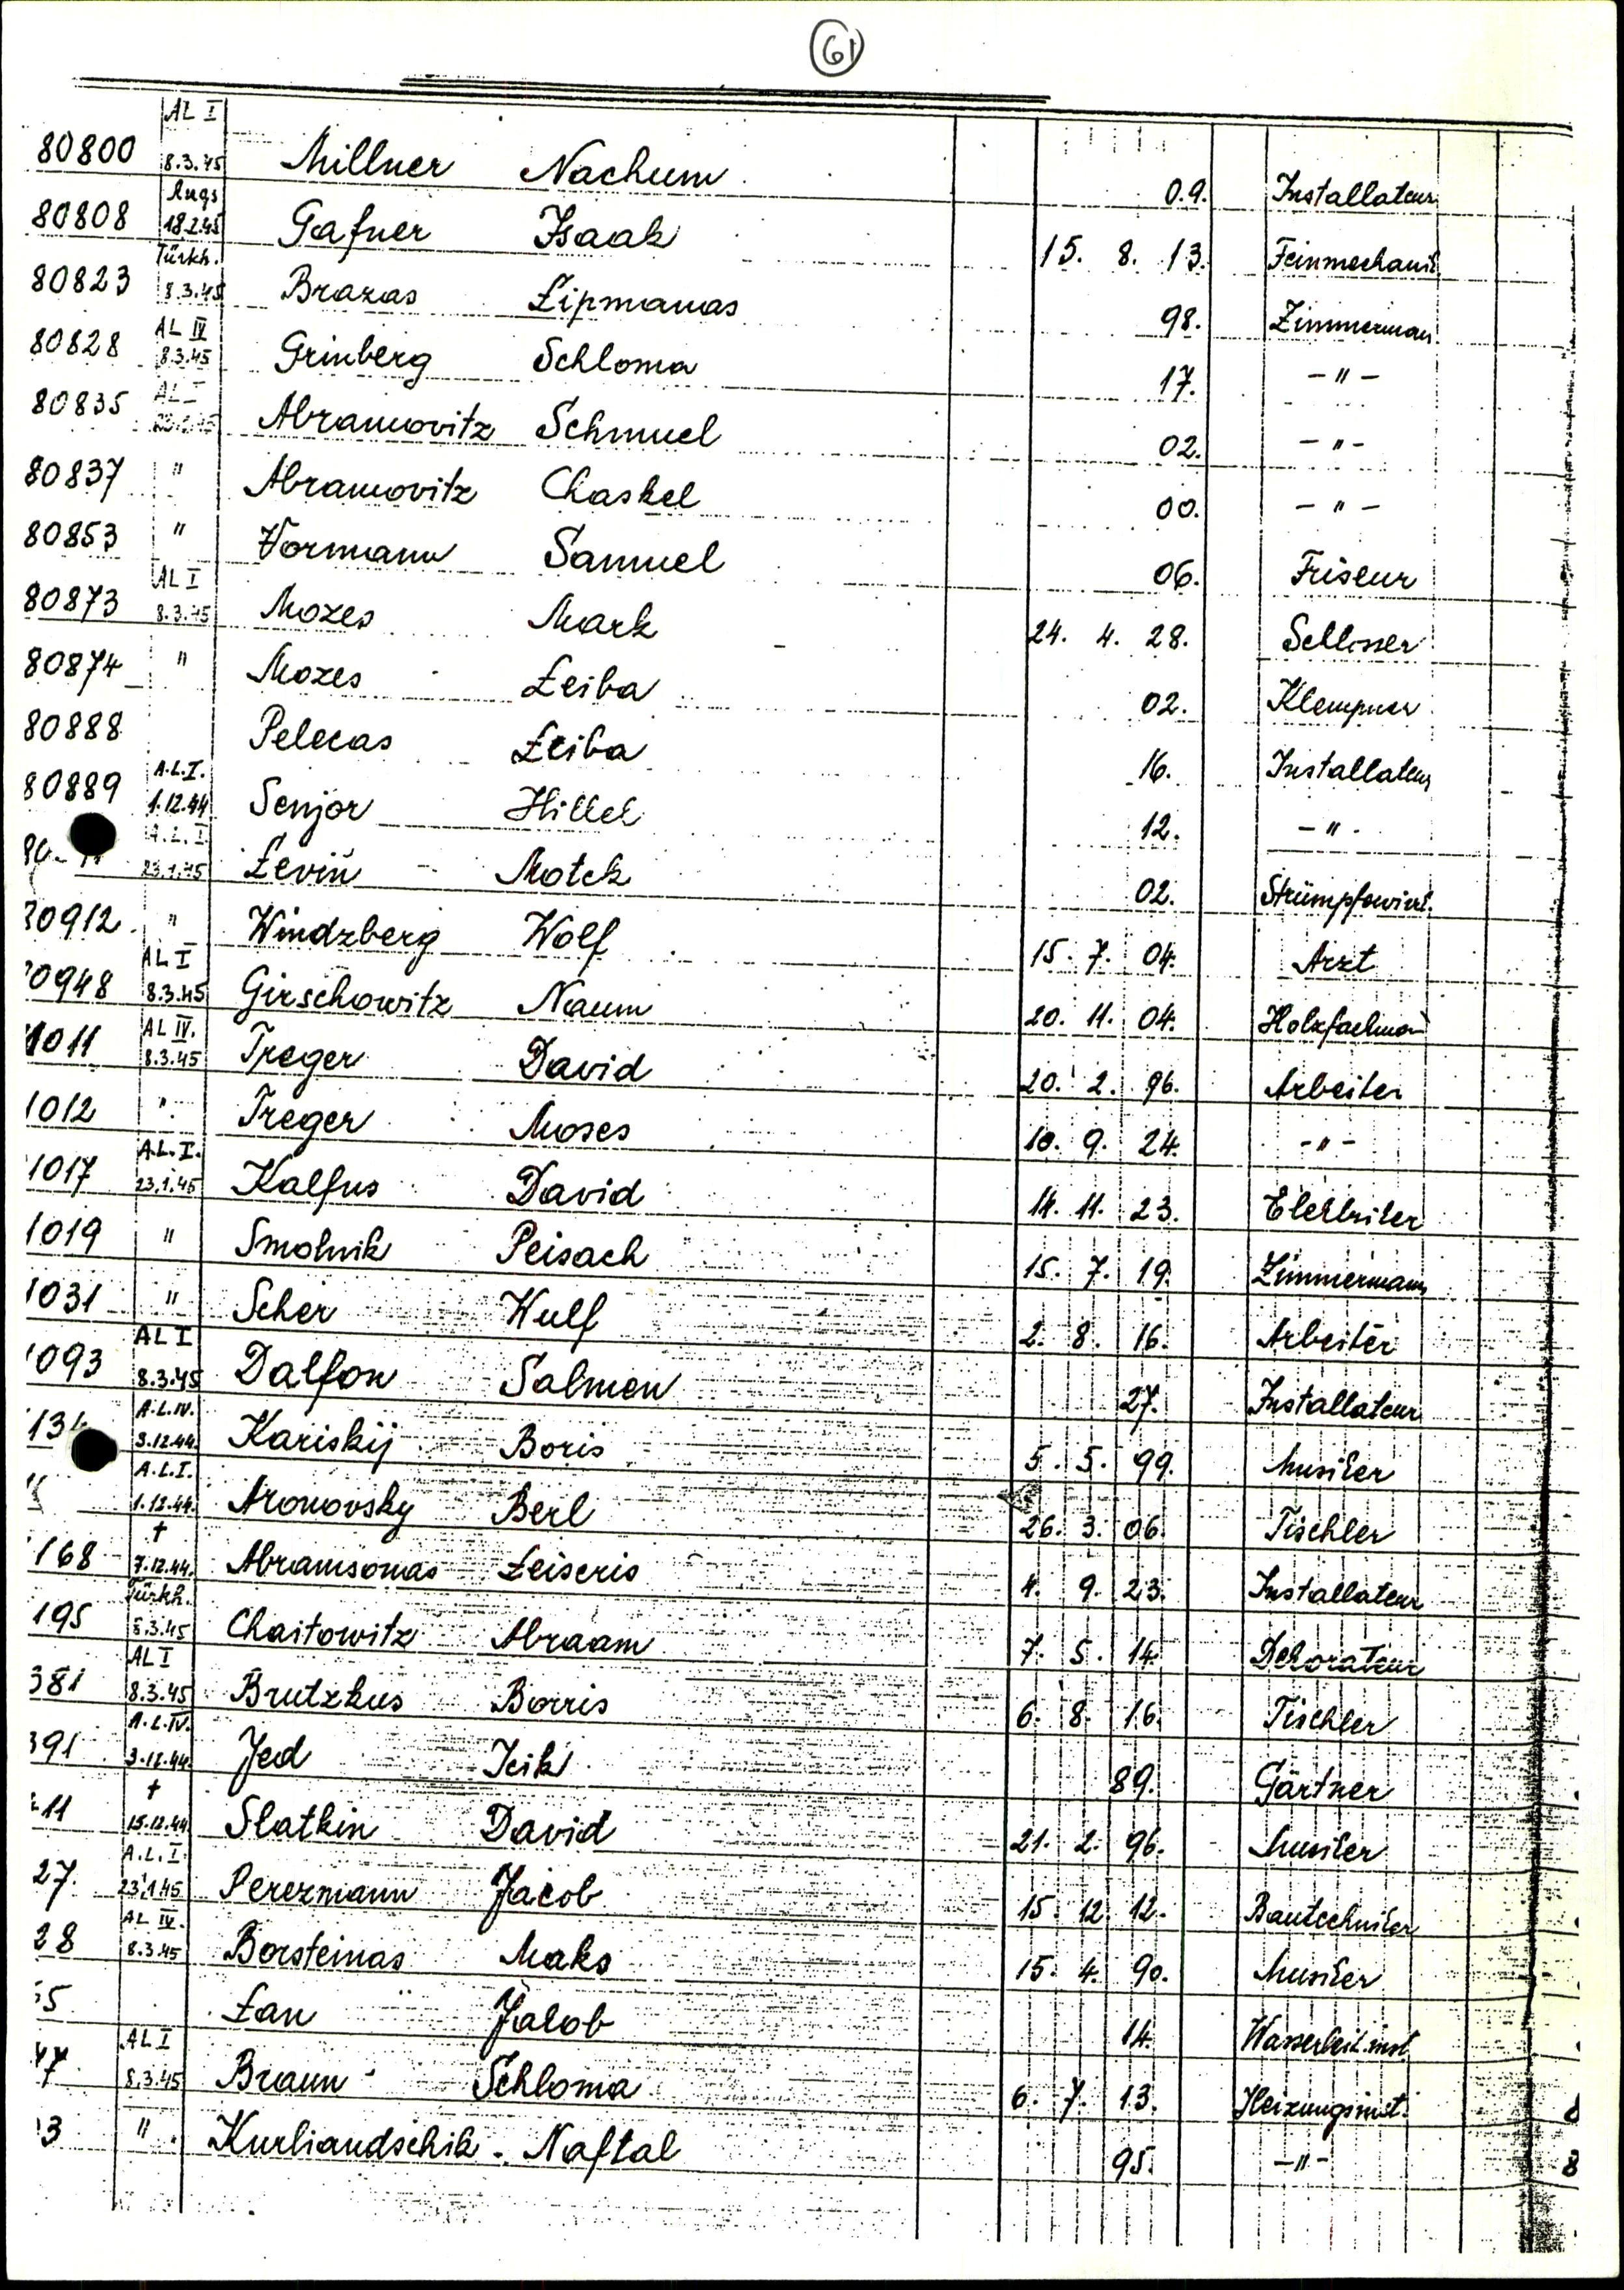 61
AL I
80800 8.3.45 Millner Nachum 09. Installateur
Augs
80808 18.2.45 Gafner Isaak 15. 8. 13. Feinmechanik
Türkh.
80823 8.3.45 Brazas Lipmanas 98. Zimmerman
AL IV
80828 8.3.45 Grinberg Schloma 17. - " -
AL I
80835 Abramovitz Schmuel 02. - " -
80837 " Abramovitz Chaskel 00. - " -
80853 " Vormann Samuel 06. Friseur
AL I
80873 8.3.45 Mozes Mark 24. 4. 28. Schlosser
80874 " Mozes Leiba 02. Klempner
80888 Pelecas Leiba 16. Installateur
A.L.I.
80889 1.12.44 Senjor Hillel 12. - " -
A.L.I
23.1.45 Levin Motek 02. Strümpfewirk.
80912 " Windzberg Wolf 15. 7. 04. Arzt
AL I
0948 8.3.45 Girschowitz Naum 20. 11. 04. Holzfachman
AL IV.
1011 8.3.45 Treger David 20. 2. 96. Arbeiter
1012 " Treger Moses 10. 9. 24. - " -
A.L.I.
1017 23.1.45 Kalfus David 11. 23.
1019 " Smolnik Peisach 15. 7. 19. Zimmermann
1031 " Scher Wulf 2. 8. 16. Arbeiter
AL I
1093 8.3.45 Dalfon Salmen 27. Installateur
A.L.IV.
134 3.12.44. Kariskij Boris 5. 5. 99. Musiker
A.L.I.
1.12.44. Aronovsky Berl 26. 3. 06. Tischler
†
168 7.12.44. Abramsonas Leiseris 4. 9. 23. Installateur
Türkh.
195 8.3.45 Chaitowitz Abraam 7. 5. 14. Dekorateur
AL I
381 8.3.45 Brutzkus Borris 6. 8. 16. Tischler
A.L.IV.
391 3.12.44. Jed Icik 89. Gärtner
†
11 15.12.44 Slatkin David 21. 2. 96. Musiker
A.L.I.
27. 23.1.45 Perezmann Jacob 15. 12. 12. Bautechniker
AL IV.
28 8.3.45 Borsteinas Maks 15. 4. 90. Musiker
5 Lan Jakob 14. Wasserleit.inst.
AL I
47 8.3.45 Braun Schloma 6. 7. 13. Heizungsinst.
3 " Kurliandschik Naftal 95. - " - 8